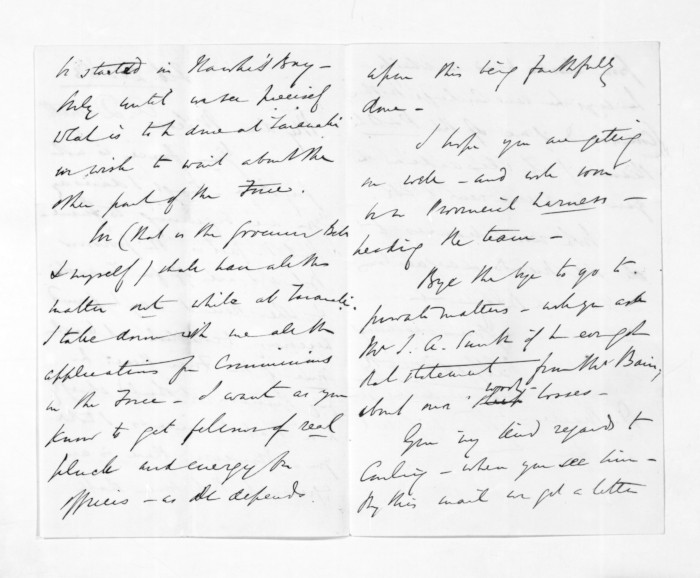 be started in Hawke's Bay –
Only until we see precisely
what is to be done at Taranaki
we wish to wait about the
other part of the Force.
We (that is the Governor Bell
& myself) shall have all this
matter out while at Taranaki.
I take down with me all the
applications for Commissions
in the Force – I want as you
know to get fellows of real
pluck and energy for
officers – as all depends
upon this being faithfully
done –
I hope you are getting
on well – and will soon
be in Provincial harness –
heading the team –
Bye the bye to go to
private matters – will you ask
Mr J. A. Smith if he ever got
that statement from Mr Bain,
about our wool losses –
Give my kind regards to
Curling – when you see him –
By this mail we get a letter